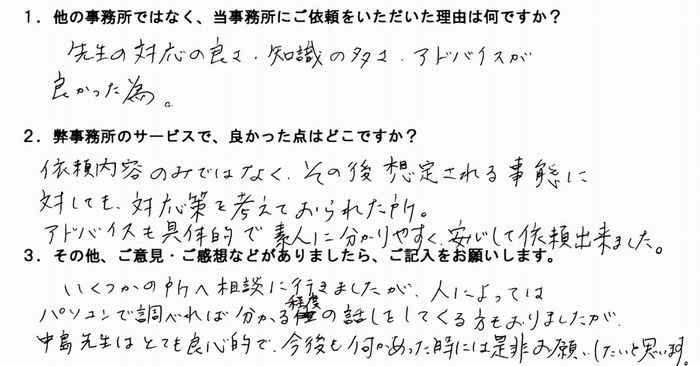 １．他の事務所ではなく、当事務所にご依頼をいただいた理由は何ですか？
先生の対応の良さ、知識の多さ、アドバイスが
良かった為。
２．弊事務所のサービスで、良かった点はどこですか？
依頼内容のみではなく、その後想定される事態に
対しても、対応策を考えておられた所。
アドバイスも具体的で素人に分かりやすく、安心して依頼出来ました。
３．その他、ご意見・ご感想などがありましたら、ご記入をお願いします。
いくつかの所へ相談に行きましたが、人によっては
パソコンで調べれば分かる程度の話しをしてくる方もおりましたが、
中島先生はとても良心的で、今後も何かあった時には是非お願いしたいと思います。